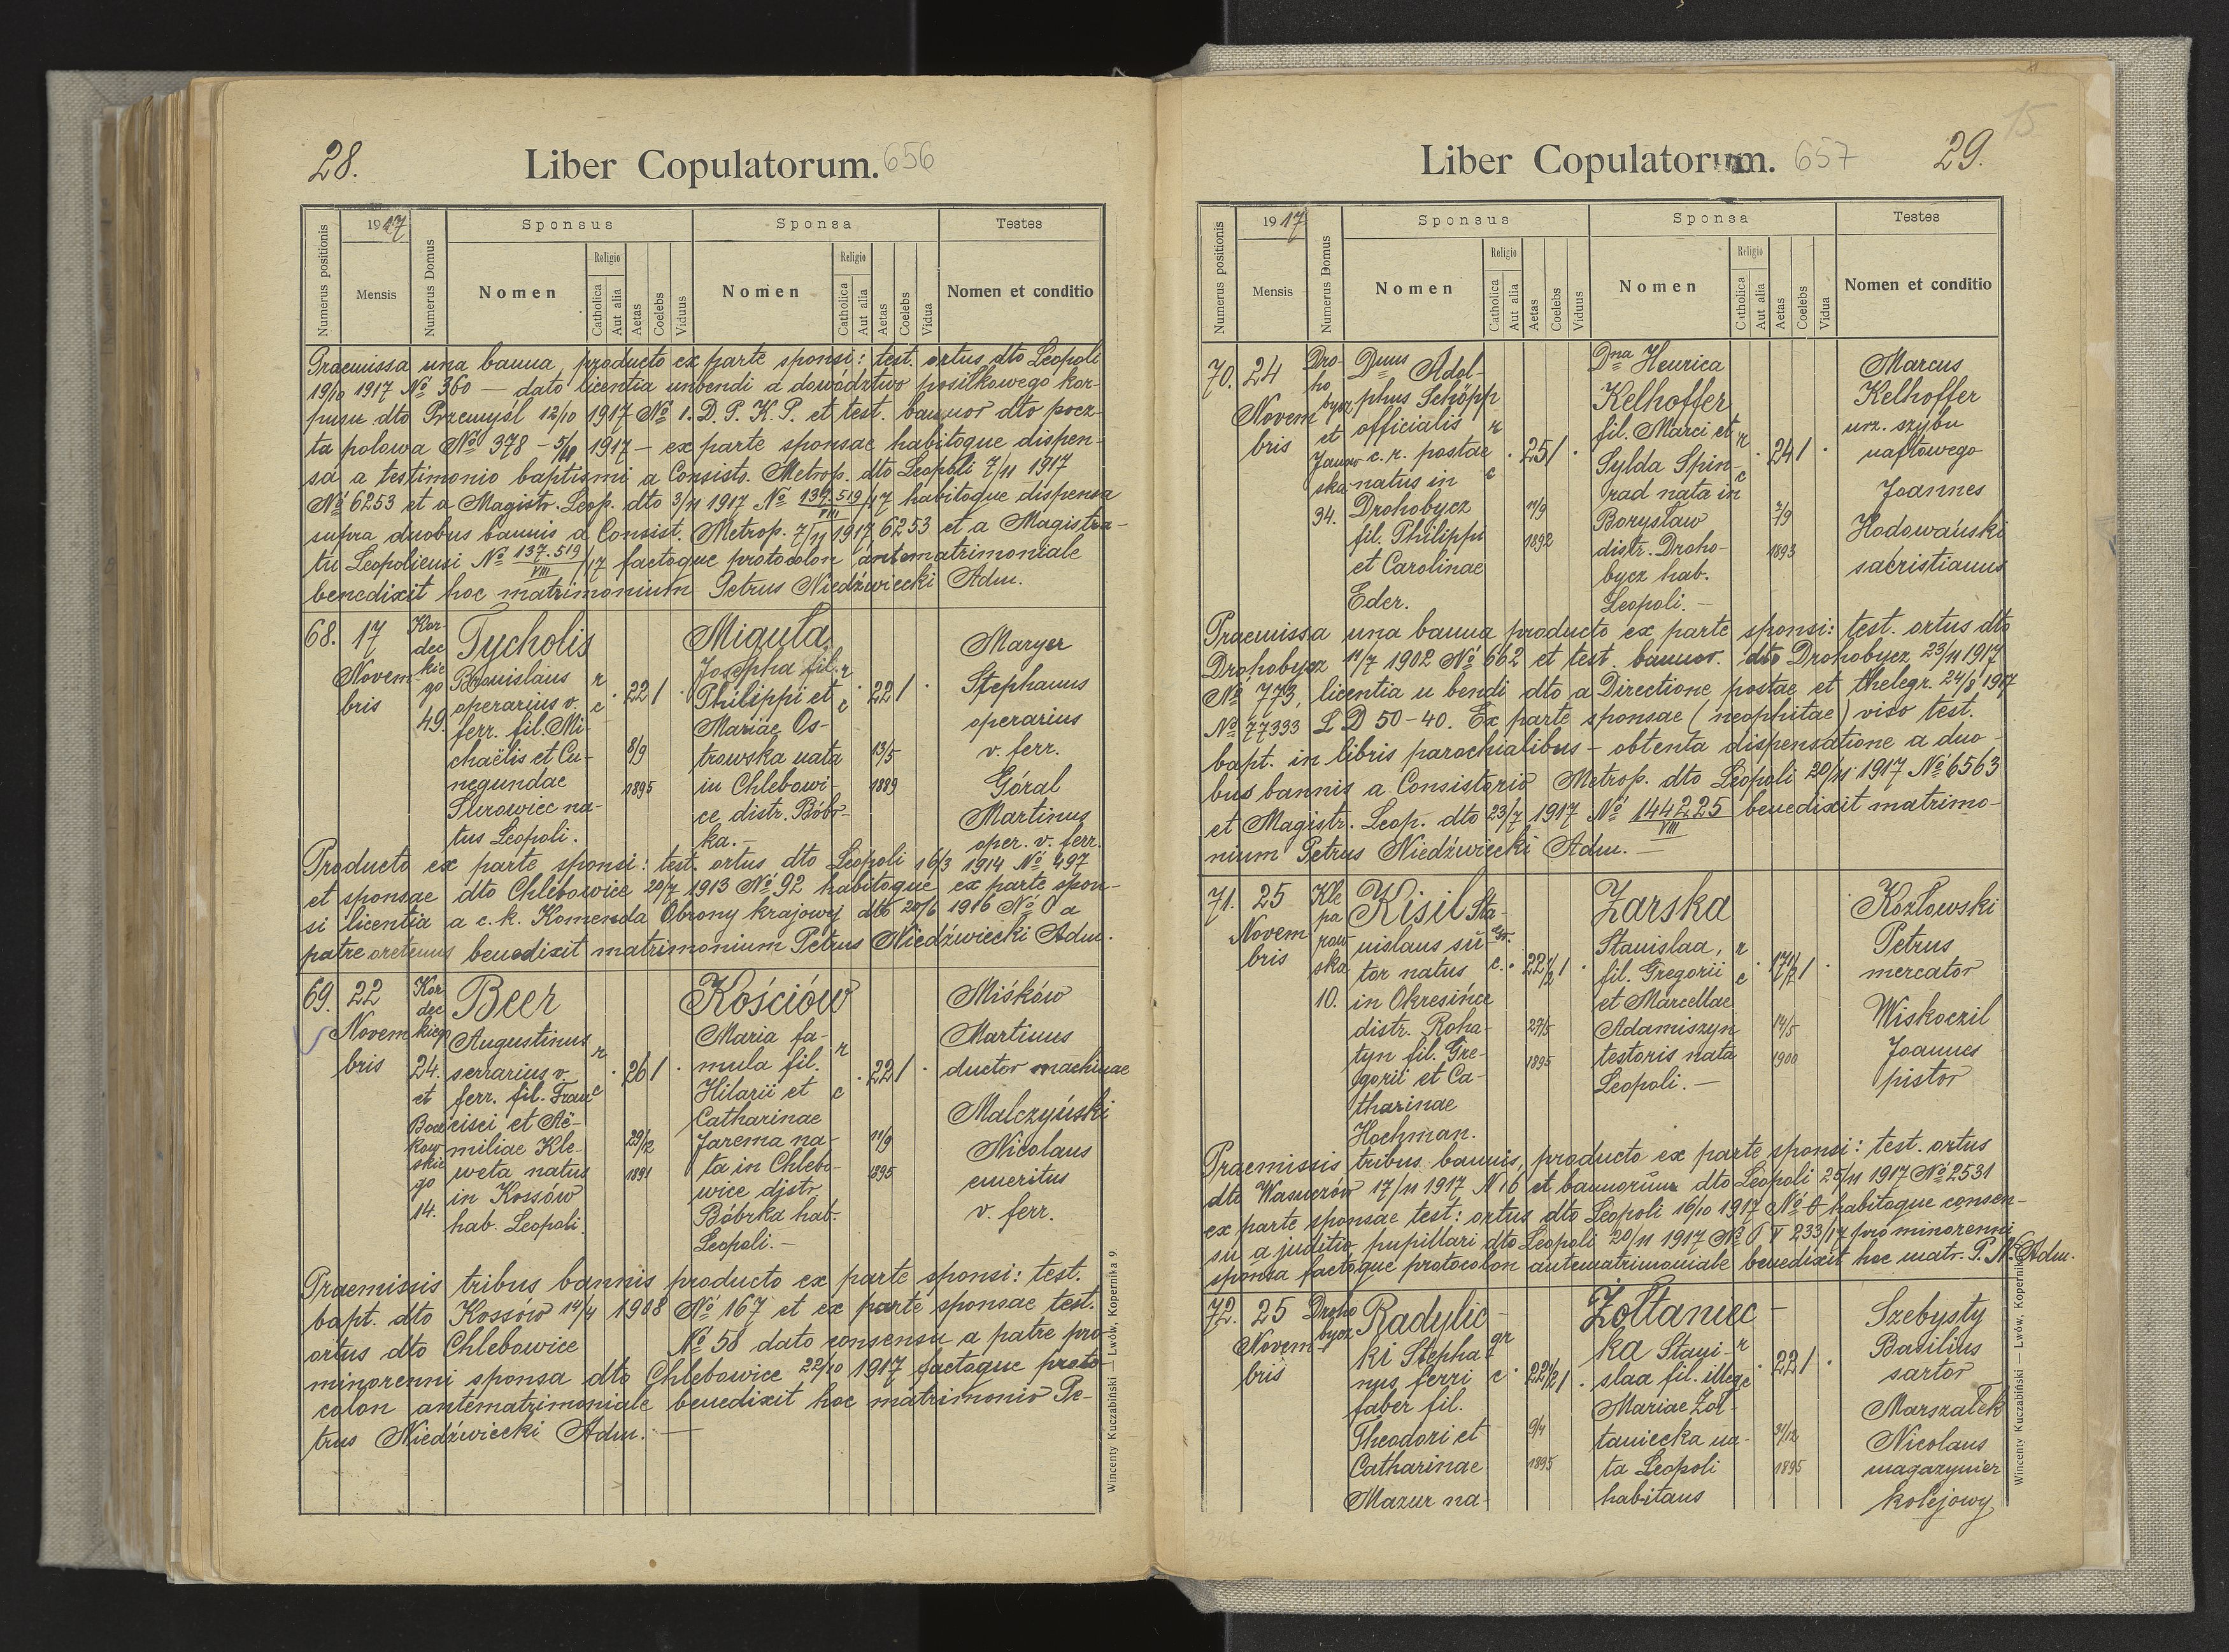 28.
Liber Copulatorum. 656
Numerus positionis
1917
Mensis
Numerus Domus
Sponsus
Nomen
Religio
Catholica
Aut alia
Aetas
Coelebs
Viduus
Sponsa
Nomen
Religio
Catholica
Aut alia
Aetas
Coelebs
Vidua
Testes
Nomen et conditio
Praemissa una banna producto ex parte sponsi: test. ortus dto Leopoli
19/10 1917 No 360 — dato licentia unbendi a dowództwo posiłkowego kor-
pusu dto Przemyśl 12/10 1917 No 1. D. P. K. P. et test. bannor dto pocz-
ta polowa No 378 - 1917 - ex parte sponsae habitoque dispen-
sa a testimonio baptismi a Consists. Metrop. dto Leopoli 7/11 1917
No 6253 et a Magistr. Leop. dto 3/11 1917 No 137.519/VIII/17 habitoque dispensa
supra duobus bannis a Consist. Metrop. 7/11 1917 6253 et a Magistra-
tu Leopoliensi No 137.519/VIII/17 factoque protocolon antematrimoniale
benedixit hoc matrimonium Petrus Niedźwiecki Adm.
68. 17 Novembris
Kordeckiego 49.
Tycholis
Bronislaus
operarius v.
ferr. fil. Mi-
chaëlis et Cu-
negundae
Surowiec na-
tus Leopoli.
r c
22 1
8/9
1895
Miguła
Josepha fil.
Philippi et
Mariae Os-
trowska nata
in Chlebowi-
ce distr. Bóbr-
ka. -
r c
22 1
13/5
1889
Maryer
Stephanus
operarius
v. ferr.
Góral
Martinus
oper. v. ferr.
Producto ex parte sponsi: test. ortus dto Leopoli 16/3 1914 No 497
et sponsae dto Chlebowice 20/7 1913 No 92 habitoque ex parte spon-
si licentia a c. k. Komenda Obrony krajowj dto 20/6 1916 No 0 a
patre oretenus benedixit matrimonium Petrus Niedźwiecki Adm.
69. 22 Novembris
Kordeckiego
24.
et
Boczkowskiego
14.
Beer
Augustinus
serrarius v.
ferr. fil. Fran-
cisci et Aë-
miliae Kle-
weta natus
in Kossów
hab. Leopoli.
r c
26 1
29/12
1891
Kościów
Maria fa-
mula fil.
Hilarii et
Catharinae
Jarema na-
ta in Chlebo-
wice distr
Bóbrka hab.
Leopoli. -
r c
22 1
11/9
1895
Miśków
Martinus
ductor machinae
Malczyński
Nicolaus
emeritus
v. ferr.
Praemissis tribus bannis producto ex parte sponsi: test.
bapt. dto Kossów 14/4 1908 No 167 et ex parte sponsae test.
ortus dto Chlebowice No 58 dato consensu a patre pro
minorenni sponsa dto Chlebowice 22/10 1917 factoque proto-
colon antematrimoniale benedixit hoc matrimonio Pe-
trus Niedźwiecki Adm. —
Wincenty Kuczabiński — Lwów, Kopernika 9.
15
Liber Copulatorum. 657
29.
Numerus positionis
1917
Mensis
Numerus Domus
Sponsus
Nomen
Religio
Catholica
Aut alia
Aetas
Coelebs
Viduus
Sponsa
Nomen
Religio
Catholica
Aut alia
Aetas
Coelebs
Vidua
Testes
Nomen et conditio
70. 24 Novembris
Drohobycz
et
Janowska
34.
Dnus Adol-
phus Schöpp
officialis
c. r. postae
natus in
Drohobycz
fil. Philippi
et Carolinae
Eder.
r c
25 1
11/9
1892
Dna Henrica
Kelhoffer
fil. Marci et
Sylda Spin-
rad nata in
Borysław
distr. Droho-
bycz hab.
Leopoli. -
r c
24 1
7/9
1893
Marcus
Kelhoffer
urz. szybu
naftowego
Joannes
Hodowański
sacristianus
Praemissa una banna producto ex parte sponsi: test. ortus dto
Drohobycz 11/7 1902 No 662 et test. bannor. dto Drohobycz 23/11 1917
No 773, licentia u bendi dto a Directione postae et thelegr. 24/8 1917
No 77333 L D 50-40. Ex parte sponsae (neophitae) viso test.
bapt. in libris parochialibus - obtenta dispensatione a duo-
bus bannis a Consistorio Metrop. dto Leopoli 20/11 1917 No 6563
et Magistr. Leop. dto 23/7 1917 No 144225/VIII benedixit matrimo-
nium Petrus Niedźwiecki Adm. —
71. 25 Novembris
Kleparowska
10.
Kisil Sta-
nislaus su-
tor natus
in Okresińce
distr. Roha-
tyn fil. Gre-
gorii et Ca-
tharinae
Hochman.
gr. c.
22 1/2 1
27/5
1895
Zarska
Stanislaa,
fil. Gregorii
et Marcellae
Adamiszyn
testoris nata
Leopoli. -
r c
17 1/2 1
14/5
1900
Kozłowski
Petrus
mercator
Wiskoczil
Joannes
pistor
Praemissis tribus bannis, producto ex parte sponsi: test. ortus
dto Wasuczów 17/11 1917 N 16 et bannorum dto Leopoli 25/11 1917 No 2531
ex parte sponsae test: ortus dto Leopoli 16/10 1917 No 0 habitoque consen-
su a juditio pupillari dto Leopoli 20/11 1917 No P V 233/17 pro minorenni
sponsa factoque protocolon antematrimoniale benedixit hoc matr. P. N. Adm.
72. 25 Novembris
Drohobycz
Radylic-
ki Stepha-
nus ferri
faber fil.
Theodori et
Catharinae
Mazur na-
gr c
22 1/2 1
9/4
1895
Żołtaniec-
ka Stani-
slaa fil. illeg.
Mariae Żoł-
taniecka na-
ta Leopoli
habitans
r c
22 1
31/12
1895
Szebysty
Basilius
sartor
Marszałek
Nicolaus
magazynier
kolejowy
Wincenty Kuczabiński — Lwów, Kopernika 9.